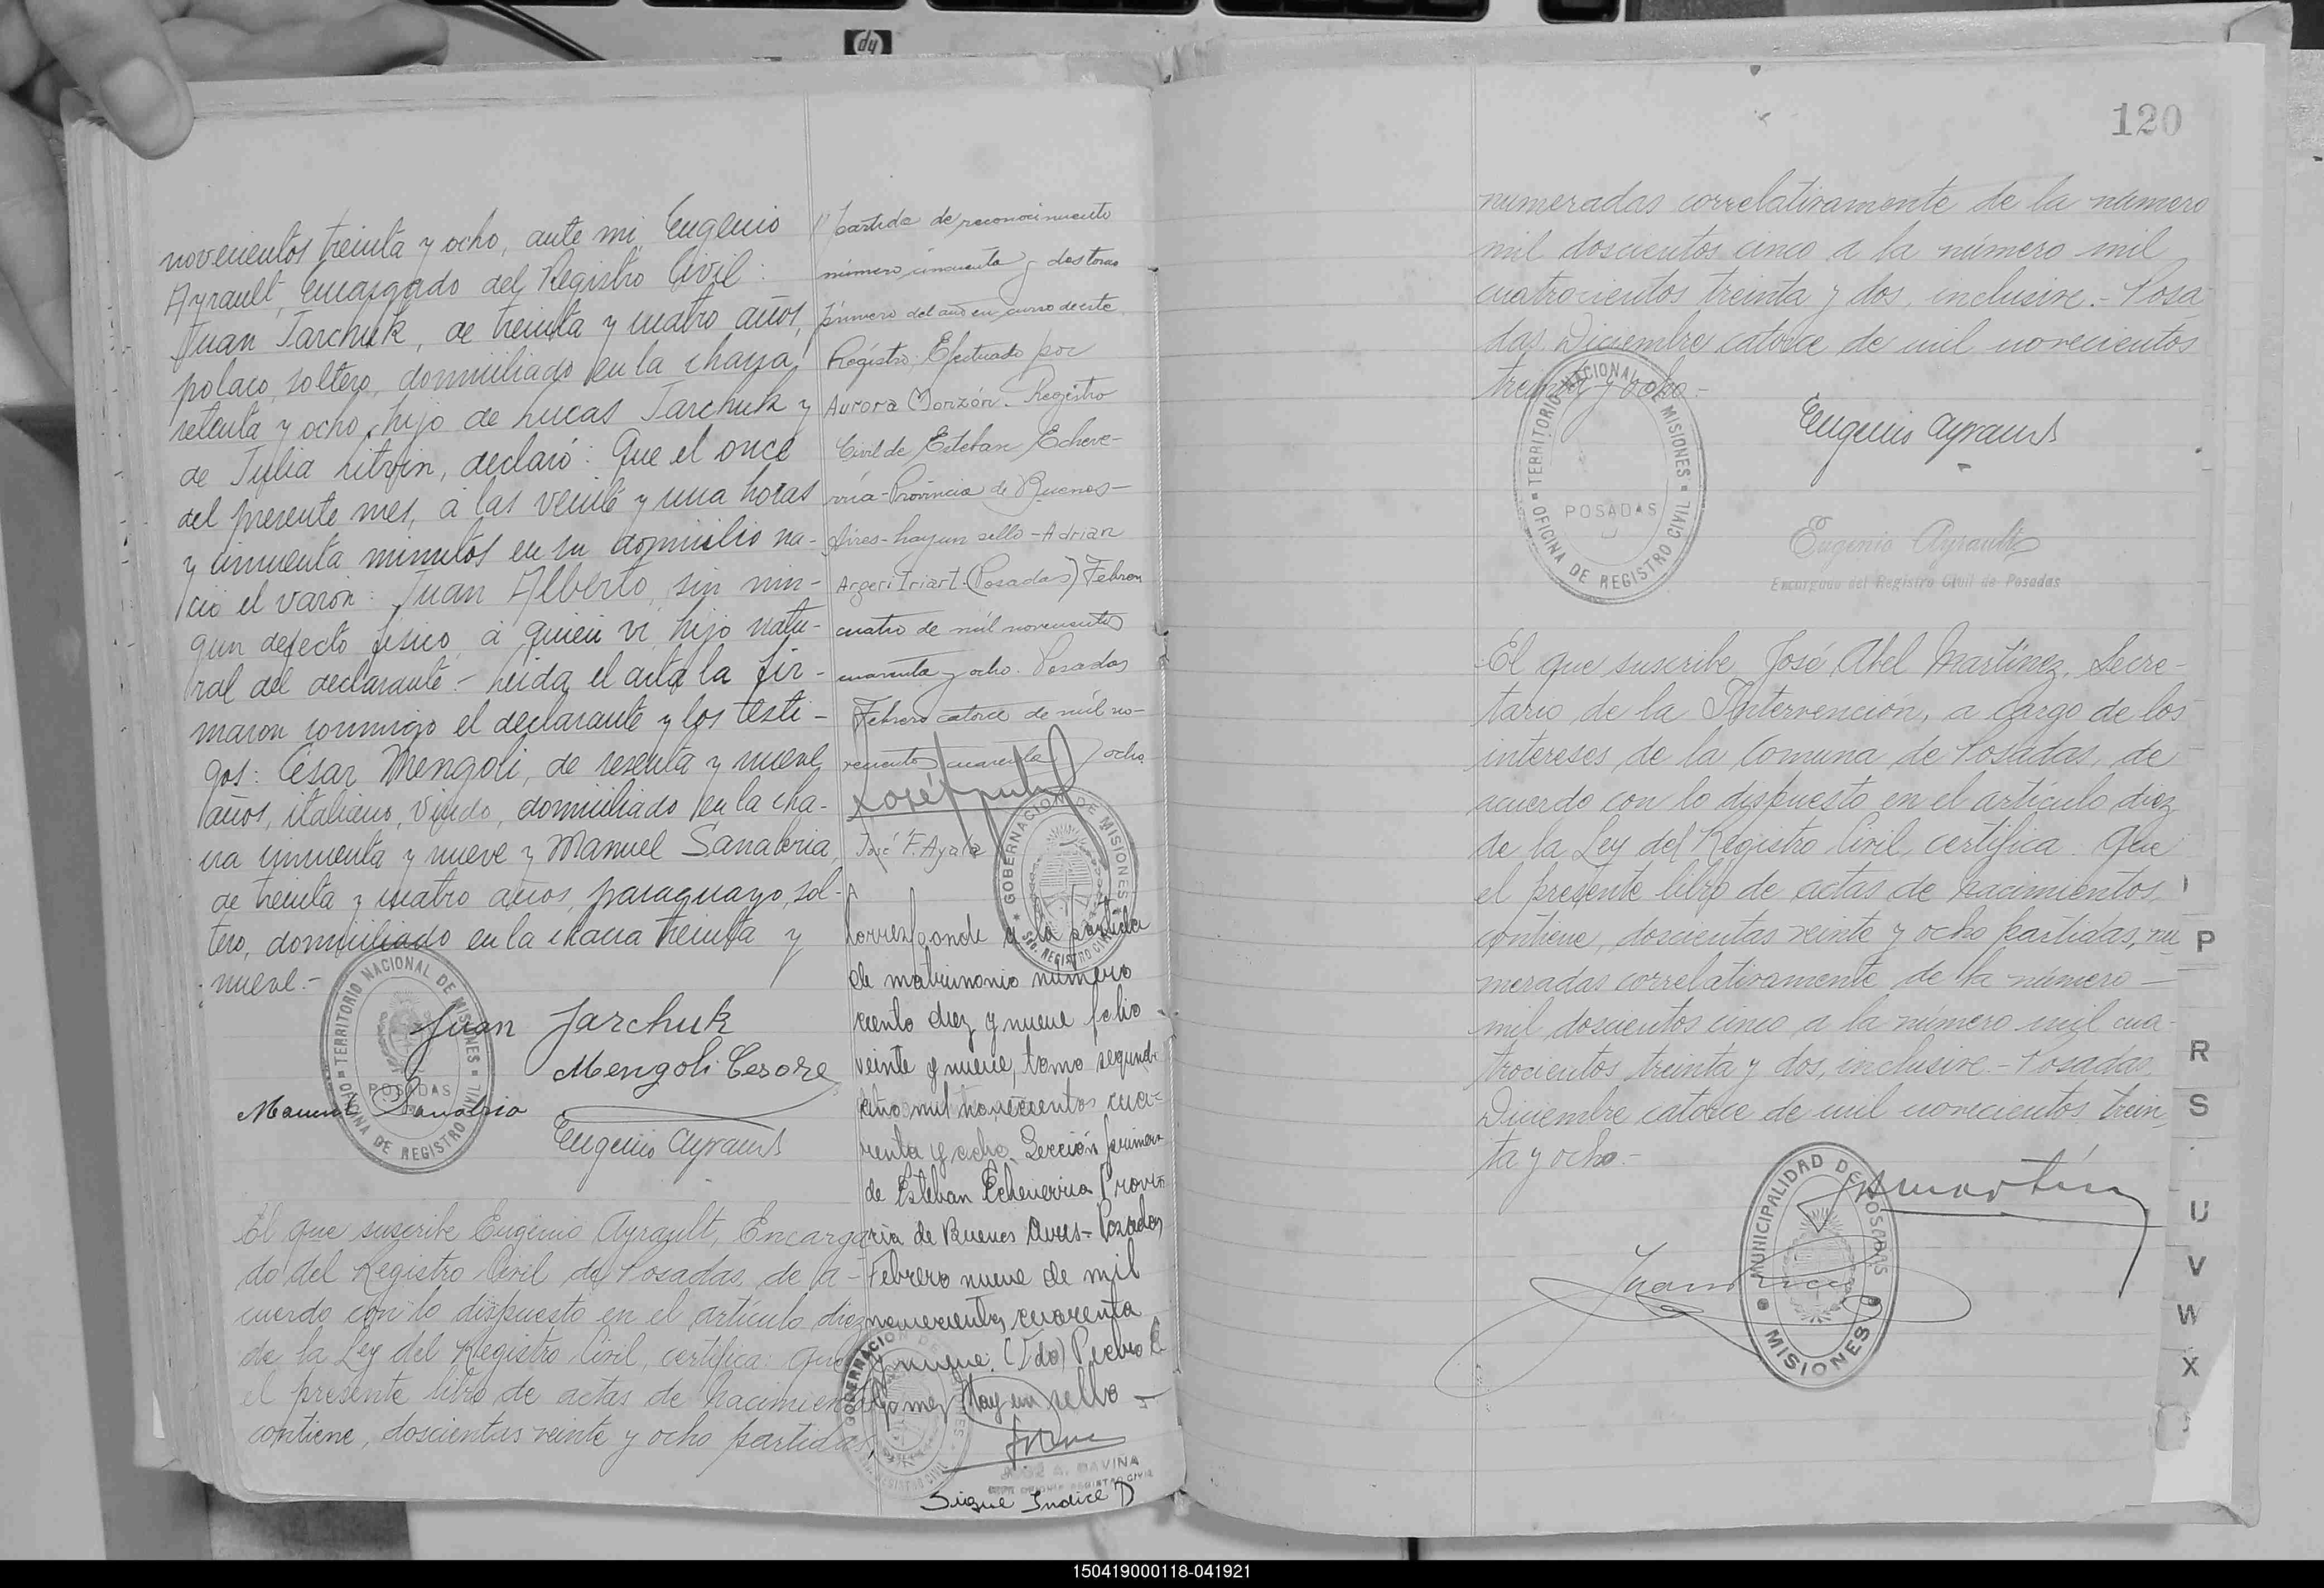 novecientos treinta y ocho, ante mi, Eugenio
Ayrault, Encargado del Registro Civil:
Juan Jarchuk, de treinta y cuatro años,
polaco, soltero, domiciliado en la chacra
setenta y ocho, hijo de Lucas Jarchuk y
de Julia Litvin, declaró: Que el once
del presente mes, á las veinte y una horas
y cincuenta minutos en su domicilio na-
ció el varón: Juan Alberto, sin nin-
gun defecto fisico, á quien vi, hijo natu-
ral del declarante.- Leida el acta la fir-
maron conmigo el declarante y los testi-
gos: César Mengoli, de sesenta y nueve
años, italiano, viudo, domiciliado en la cha-
cra cincuenta y nueve y Manuel Sanabria,
de treinta y cuatro años, paraguayo, sol-
tero, domiciliado en la chacra treinta y
nueve.-
TERRITORIO NACIONAL DE MISIONES
POSADAS
OFICINA DE REGISTRO CIVIL
Juan Jarchuk
Mengoli Cesore
Manuel Sanabria
Eugenio Ayrault
El que suscribe Eugenio Ayrault, Encarga
do del Registro Civil de Posadas, de a-
cuerdo con lo dispuesto en el artículo diez
de la Ley del Registro Civil, certifica: Que
el presente libro de actas de nacimientos
contiene, doscientas veinte y ocho partidas,
partida de reconocimiento
número cincuenta y dos tomo
primero del año en curso de este
Registro. Efectuado por
Aurora Monzón. Registro
Civil de Esteban Echeve-
rría-Provincia de Buenos-
Aires-hay un sello-Adrian
Argeri Iriart-(Posadas) Febrero
cuatro de mil novecientos
cuarenta y ocho. Posadas
Febrero catorce de mil no-
vecientos cuarenta y ocho
José F. Ayala
GOBERNACION DE MISIONES
REGISTRO CIVIL
Corresponde a la partida
de matrimonio número
ciento diez y nueve folio
veinte y nueve, tomo segundo
año mil novecientos cua-
renta y ocho. Sección primera
de Esteban Echeverria Provin
cia de Buenos Aires- Posadas,
Febrero nueve de mil
novecientos cuarenta
y nueve. (Fdo) Pedro C.
Gomez Hay un sello -
GOBERNACION DE
REGISTRO CIVIL
JOSE A. DAVIÑA
Sigue Indice D
120
numeradas correlativamente de la número
mil doscientos cinco a la número mil
cuatrocientos treinta y dos, inclusive.- Posa
das, Diciembre catorce de mil novecientos
treinta y ocho.-
TERRITORIO NACIONAL DE MISIONES
POSADAS
OFICINA DE REGISTRO CIVIL
Eugenio Ayrault
Eugenio Ayrault
Encargado del Registro Civil de Posadas
El que suscribe, José Abel Martínez, Secre-
tario de la Intervención, a cargo de los
intereses de la Comuna de Posadas, de
acuerdo con lo dispuesto en el artículo diez
de la Ley del Registro Civil, certifica: Que
el presente libro de actas de nacimientos,
contiene, doscientas veinte y ocho partidas, nu
meradas correlativamente de la número -
mil doscientos cinco a la número mil cua-
trocientos treinta y dos, inclusive.- Posadas,
Diciembre catorce de mil novecientos trein-
ta y ocho.-
MUNICIPALIDAD DE POSADAS
MISIONES
P
R
S
U
V
W
X
150419000118-041921